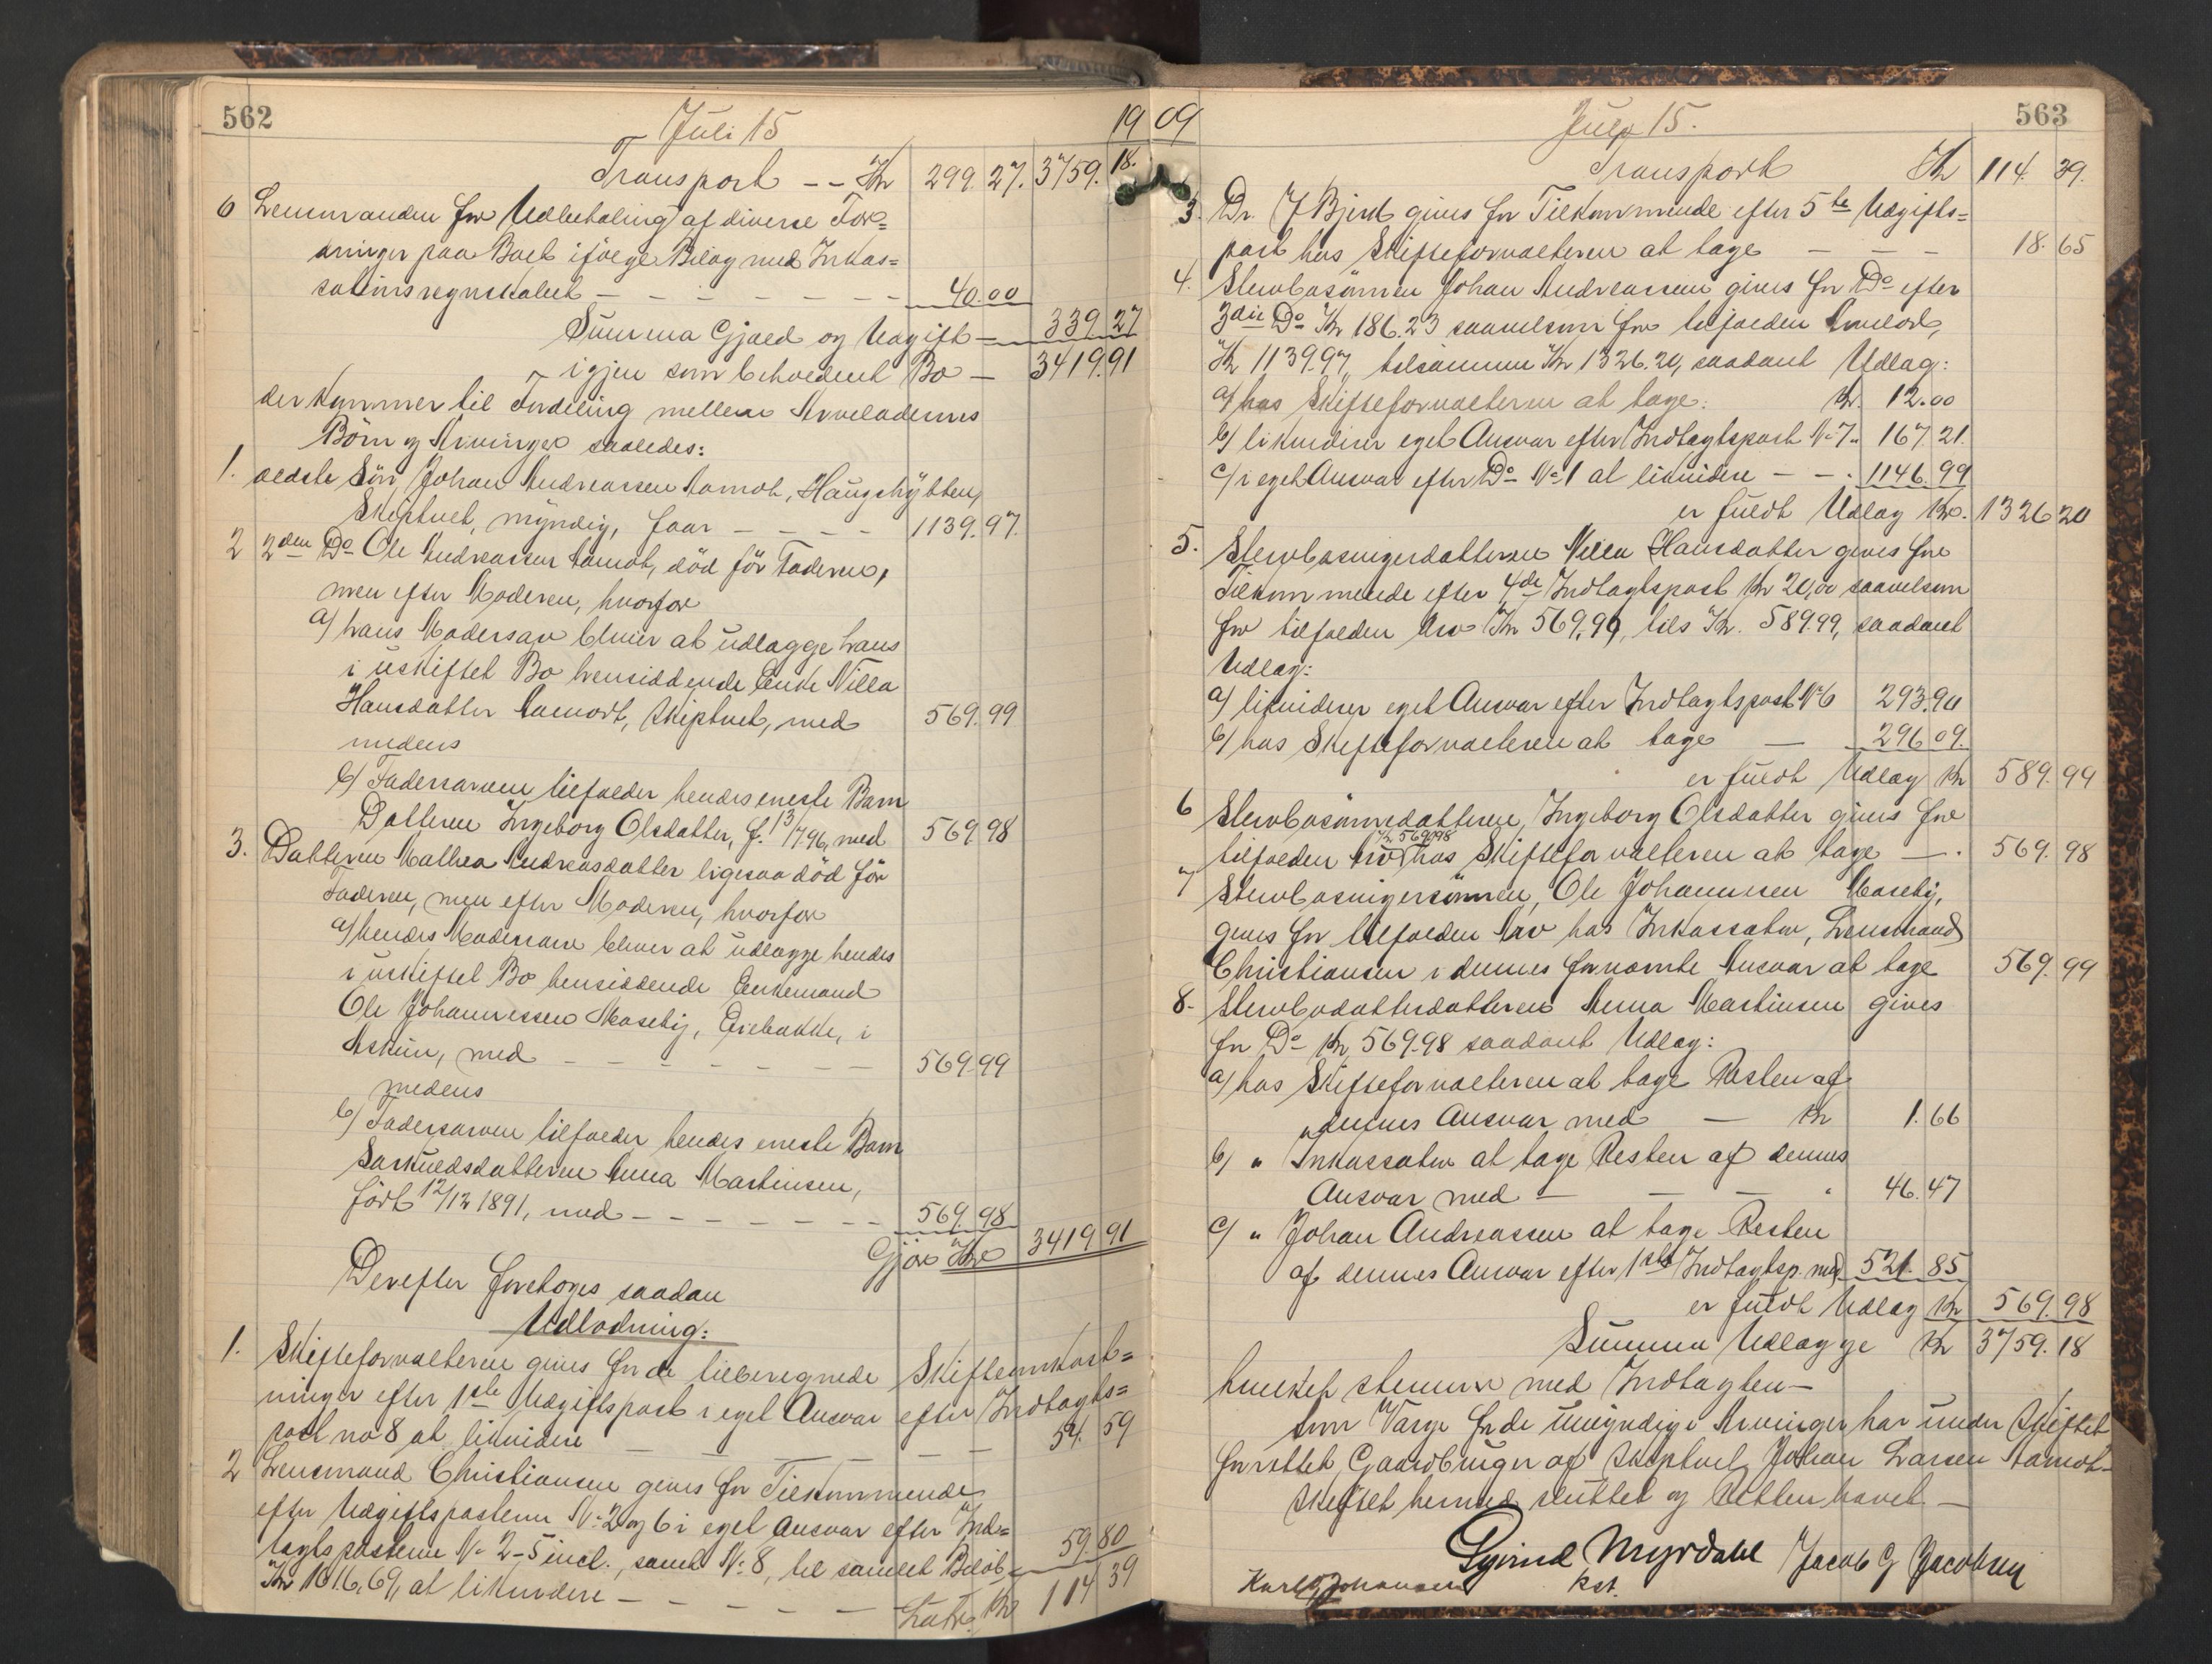 562
Juli 15
1909
Transport -- Kr 299.27. 3759.18.
6 Lensmanden for Udbetaling af diverse For=
dringer paa Boet ifølge Bilag med Inkas=
sationsregnskabet - - - - - - 40.00
Summa Gjæld og Udgift - 339 27
igjen som beholdent Bo - 3419.91
der kommer til Fordeling mellem Arveladerens
Børn og Arvinger saaledes:
1. ældste Søn Johan Andreassen Aamot, Haugshytten,
Skiptvet, myndig, faar - - - - 1139.97.
2 2den Do Ole Andreassen Aamot, død før Faderen,
men efter Moderen, hvorfor
a) hans Modersarv bliver at udlægge hans
i uskiftet Bo hensiddende Enke Nilla
Hansdatter Aamodt, Skiptvet, med 569.99
medens
b) Fadersarven tilfalder hendes eneste Barn
Datteren Ingeborg Olsdatter, f. 13/7.96, med 569.98
3. Datteren Mathea Andreasdatter ligesaa død før
Faderen, men efter Moderen, hvorfor
a) hendes Modersarv bliver at udlægge hendes
i uskiftet Bo hensiddende Enkemand
Ole Johannessen Moseby, i
Askim, med - - - - - 569.99
medens
b) Fadersarven tilfalder hendes eneste Barn
Særkuldsdatteren Anna Martinsen,
født 12/12 1891, med - - - - - - 569.98
Gjør Kr 3419 91
Derefter foretoges saadan
Udlodning:
1. Skifteforvalteren gives for de tilberegnede Skifteomkost=
ninger efter 1ste Udgiftspost i eget Ansvar efter Indtægts=
post no 8 at likvidere - - - - 54. 59
2 Lensmand Christiansen gives for Tilkommende
efter Udgiftsposterne No 2 og 6 i eget Ansvar efter Ind=
tægtsposterne No 2-5 incl., samt No 8, til samlet Beløb
Kr 1616,69, at likvidere - - - - - 59.80
Latus Kr 114 39
563
July 15.
Transport Kr 114. 39.
3. Dr. J Bjerk gives for Tilkommende efter 5te Udgifts=
post hos Skifteforvalteren at tage - - - 18.65
4. Stervbosønnen Johan Andreassen gives for Do efter
3die Do Kr 186.23 saavelsom for tilfalden Arvelod,
Kr 1139.97, tilsammen Kr 1326.20, saadant Udlæg:
a) hos Skifteforvalteren at tage: Kr. 12.00
b) likviderer eget Ansvar efter Indtægtspost No 7 " 167.21.
c) i eget Ansvar efter Do No 1 at likvidere - - . 1146.99
er fuldt Udlæg Kr. 1326 20
5. Stervbosvigerdatteren Nilla Hansdatter gives for
Tilkommende efter 4de Indtægtspost Kr 20,00 saavelsom
for tilfalden Arv Kr 569,99, tils Kr. 589.99, saadant
Udlæg:
a) likviderer eget Ansvar efter Indtægtspost No 6 293.90
b) hos Skifteforvalteren at tage - 296 09.
er fuldt Udlæg Kr 589.99
6 Stervbosønnedatteren, Ingeborg Olsdatter gives for
tilfalden Arv Kr. 569.98 hos Skifteforvalteren at tage -. 569.98
7 Stervbosvigersønnen, Ole Johannesen Moseby,
gives for tilfalden Arv hos Inkassator, Lensmand
Christiansen i dennes fornævnte Ansvar at tage 569.99
8. Stervbodatterdatteren Anna Martinsen gives
for Do Kr 569.98 saadant Udlæg:
a) hos Skifteforvalteren at tage Resten af
dennes Ansvar med - Kr 1.66
b) " Inkassator at tage Resten af dennes
Ansvar med - - - " 46.47
c) " Johan Andreassen at tage Resten
af dennes Ansvar efter 1ste Indtægtsp. med 521.85
er fuldt Udlæg Kr 569.98
Summa Udlægge Kr 3759.18
hvilket stemmer med Indtægten -
Som Værge for de umyndige Arvinger har under Skiftet
forrettet Gaardbruger af Skiptvet Johan Larsen Aamot.
Skiftet hermed sluttet og Retten hævet. -
Eyvind Myrdahl Jacob G Jacobsen
Karl Johansen kst.